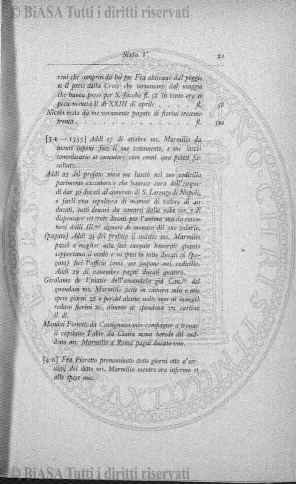 © BiASA Tutti i diritti riservati
Sixto V. 21
reni che comprai da lui per Frà abitano dal poggio
et il prete della Croce che terminano dal maggio
che hanno preso per S. Jacobo fl. 58 in tanto oro et
poca moneta il dì XXIII di aprile fl. 58
Nicola resta da me veramente pagato di fiorini trecento
trenta fl. 330
1555] Addì 17 di ottobre ms. Marmilio da
monte fece il suo testamento, e me lasciò
commissario et executore cum omni qua potest fa-
cultate.
Addì 22 del prefato mese me lasciò nel suo codicillo
parimente executore e che havesse cura dell'exequi-
di dar 50 ducati al convento di S. Lorenzo di Napoli,
e farli una sepoltura di marmo di valore di 40
ducati, tutti denari da cavarsi dalla robba sua, e di
dispensare sci cento ducati per l'anima sua da exco-
tersi dalli Ill.mi signore de monaco del suo salario.
(pagato) Addì 25 del prefato il sudetto ms. Marmilio
passò a meglior vita feci exequie honorate quanto
supportava il modo e vi spesi in tutto ducati 16 (pa-
gato) feci l'officio come me impone nel codicillo.
Addì 29 di novembre pagai ducati quattro.
Girolamo de
quondam ms. Marmilio stette in camera mia a mie
spese giorni 22 e perchè alcune volte non ci mangiò
redussi fiorini 20, almeno se spendeva un carlino
il dì.
Mandai Fioretto da Castignano mio compagno a trovar
il capitano Fabio da Canita novo herede del sud-
detto ms. Marmilio a Roma pagai ducato uno.
Frà Fioretto prenominato stette giorni otto a' ser-
vigij del detto ms. Marmilio mentre era infermo et
alle spese mie.
© BiASA Tutti i diritti riservati